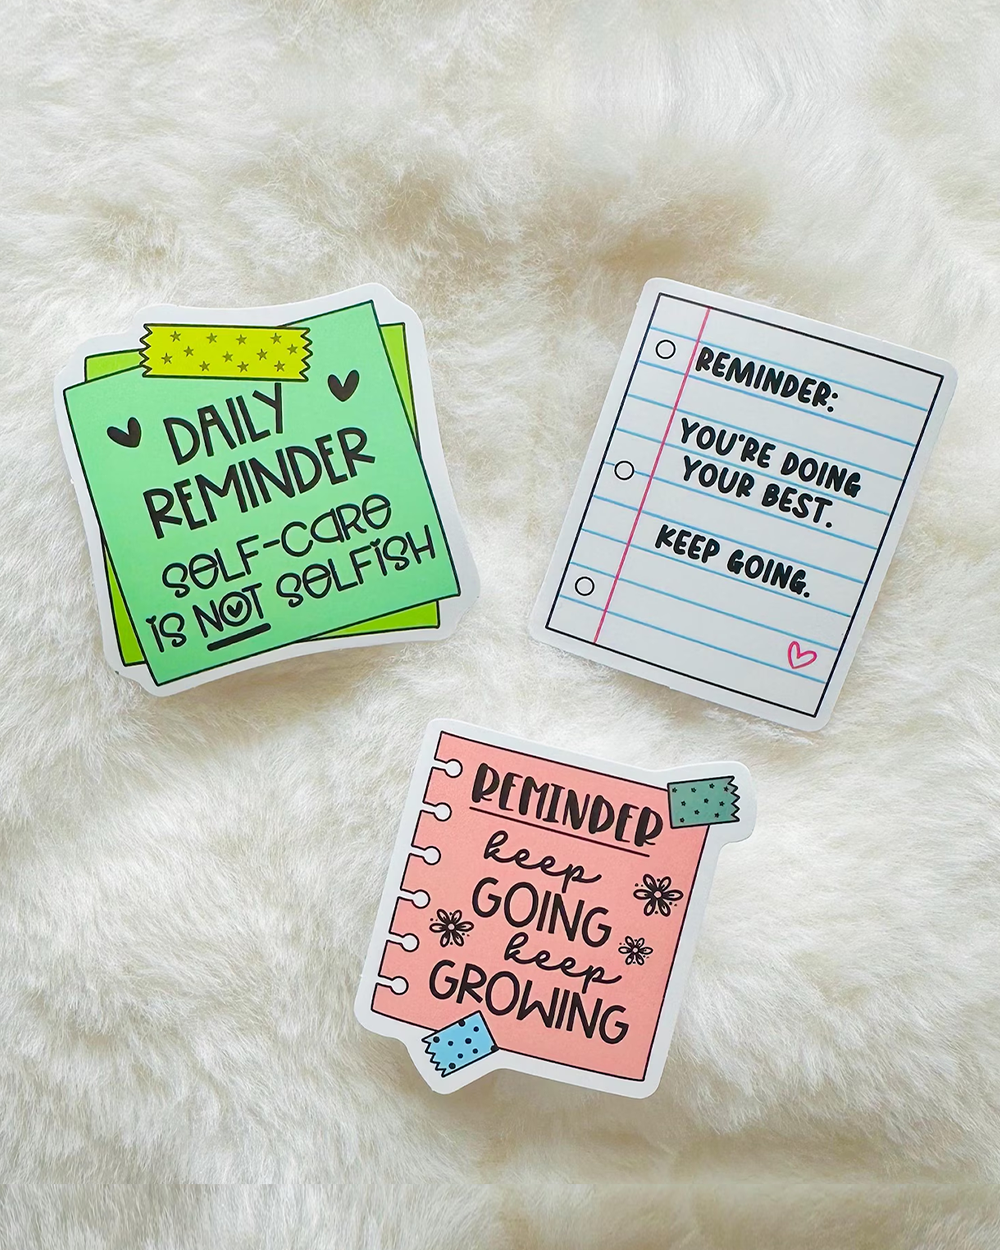 DAILY
REMINDER
SELF-CARE
IS NOT SELFISH
REMINDER:
YOU'RE DOING
YOUR BEST.
KEEP GOING.
REMINDER
keep
GOING
keep
GROWING